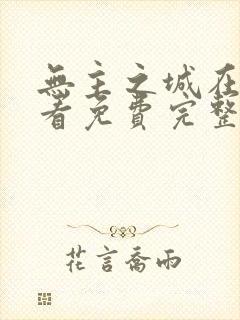 無主之城在
看免費完整
花言喬雨